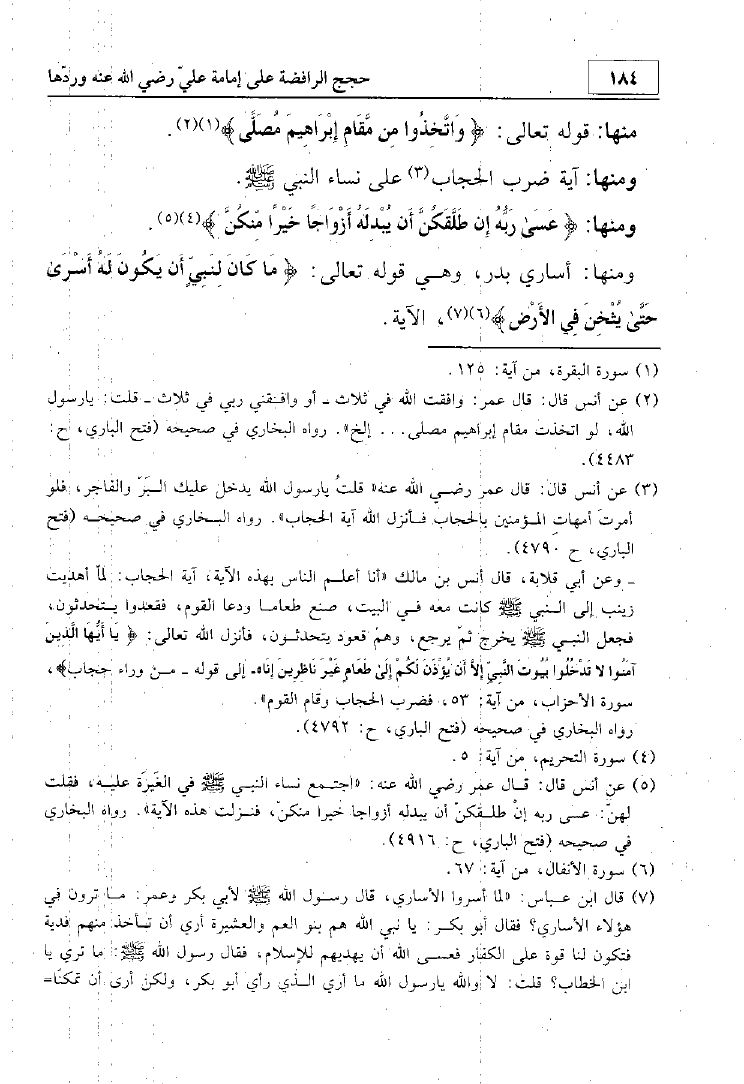 ١٨٤
حجج الرافضة على إمامة عليّ رضي الله عنه وردّها
منها: قوله تعالى: ﴿ وَاتَّخِذُوا مِن مَّقَامِ إِبْرَاهِيمَ مُصَلًّى ﴾(١)(٢).
ومنها: آية ضرب الحجاب(٣) على نساء النبي ﷺ.
ومنها: ﴿ عَسَىٰ رَبُّهُ إِن طَلَّقَكُنَّ أَن يُبْدِلَهُ أَزْوَاجًا خَيْرًا مِّنكُنَّ ﴾(٤)(٥).
ومنها: أساري بدر، وهي قوله تعالى: ﴿ مَا كَانَ لِنَبِيٍّ أَن يَكُونَ لَهُ أَسْرَىٰ
حَتَّىٰ يُثْخِنَ فِي الأَرْضِ ﴾(٦)(٧)، الآية.
(١) سورة البقرة، من آية: ١٢٥.
(٢) عن أنس قال: قال عمر: وافقت الله في ثلاث ـ أو وافقني ربي في ثلاث ـ قلت: يارسول
الله، لو اتخذت مقام إبراهيم مصلى... إلخ». رواه البخاري في صحيحه (فتح الباري، ح:
٤٤٨٣).
(٣) عن أنس قال: قال عمر رضي الله عنه» قلتُ يارسول الله يدخل عليك البَرّ والفاجر، فلو
أمرت أمهات المؤمنين بالحجاب فأنزل الله آية الحجاب». رواه البخاري في صحيحه (فتح
الباري، ح ٤٧٩٠).
ـ وعن أبي قلابة، قال أنس بن مالك «أنا أعلم الناس بهذه الآية، آية الحجاب: لمّا أهديت
زينب إلى النبي ﷺ كانت معه في البيت، صنع طعاما ودعا القوم، فقعدوا يتحدثون،
فجعل النبي ﷺ يخرج ثمّ يرجع، وهمْ قعود يتحدثون، فأنزل الله تعالى: ﴿ يَا أَيُّهَا الَّذِينَ
آمَنُوا لا تَدْخُلُوا بُيُوتَ النَّبِيِّ إِلاَّ أَن يُؤْذَنَ لَكُمْ إِلَىٰ طَعَامٍ غَيْرَ نَاظِرِينَ إِنَاهُ ـ إلى قوله ـ من وراء حجاب﴾،
سورة الأحزاب، من آية: ٥٣، فضرب الحجاب وقام القوم».
رواه البخاري في صحيحه (فتح الباري، ح: ٤٧٩٢).
(٤) سورة التحريم، من آية: ٥.
(٥) عن أنس قال: قال عمر رضي الله عنه: «اجتمع نساء النبي ﷺ في الغَيْرَة عليه، فقلت
لهنّ: عسى ربه إنْ طلقكنّ أن يبدله أزواجا خيرا منكنّ، فنزلت هذه الآية». رواه البخاري
في صحيحه (فتح الباري، ح: ٤٩١٦).
(٦) سورة الأنفال، من آية: ٦٧.
(٧) قال ابن عباس: «لما أسروا الأساري، قال رسول الله ﷺ لأبي بكر وعمر: ما ترون في
هؤلاء الأساري؟ فقال أبو بكر: يا نبي الله هم بنو العم والعشيرة أري أن تأخذ منهم فدية
فتكون لنا قوة على الكفار فعسى الله أن يهديهم للإسلام، فقال رسول الله ﷺ: ما تري يا
ابن الخطاب؟ قلت: لا والله يارسول الله ما أري الذي رأي أبو بكر، ولكن أرى أن تمكنّا=